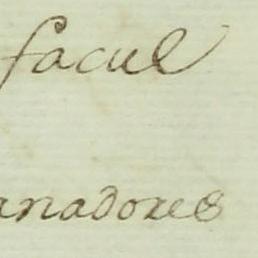 facul
anadores